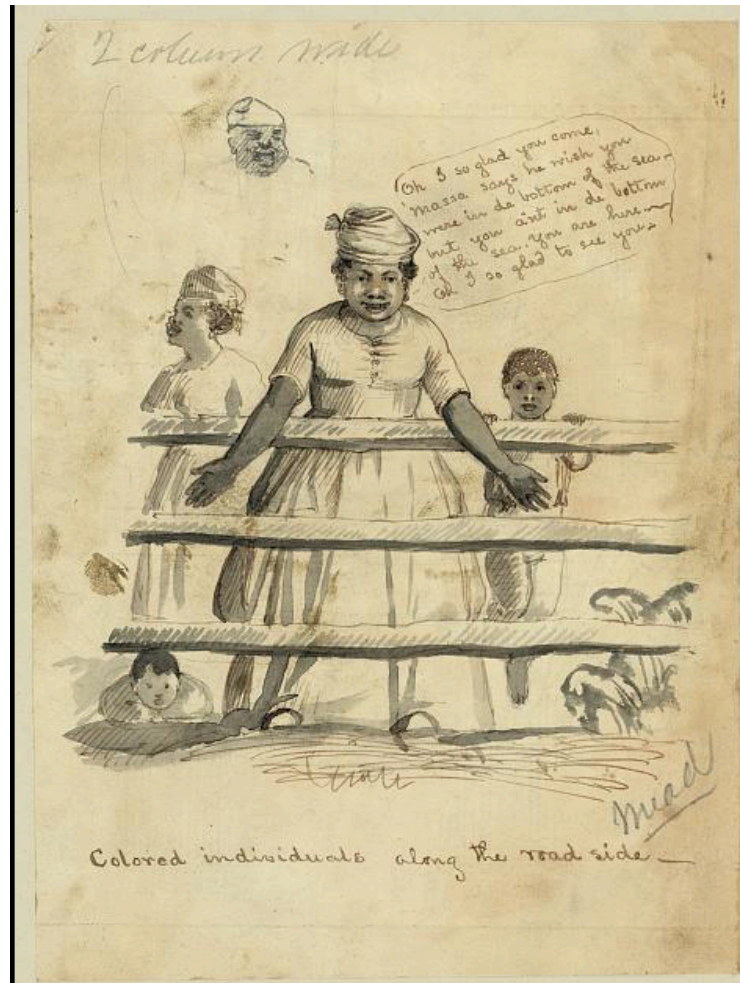 2 column wide
Oh I so glad you come,
'Massa says he wish you
were in de bottom of the sea—
but you ain't in de bottom
of the sea. You are here—
Oh I so glad to see you.
Mead
Colored individuals along the road side—